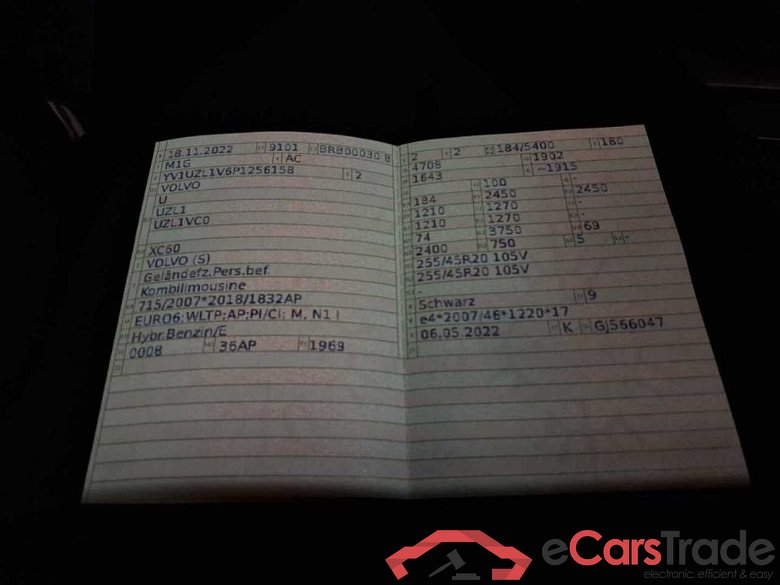 18.11.2022 9101 BRB00030 8
M1G AC
YV1UZL1V6P1256158 2
VOLVO
U
UZL1
UZL1VC0
XC60
VOLVO (S)
Geländefz.Pers.bef.
Kombilimousine
715/2007*2018/1832AP
EURO6;WLTP;AP;PI/CI; M, N1 I
Hybr.Benzin/E
0008 36AP 1969
2 2 184/5400 180
4708 1902
1643 --1915
100 -
184 2450 2450
1210 1270 -
1210 1270 -
74 3750 69
2400 750 5 -
255/45R20 105V
255/45R20 105V
Schwarz 9
e4*2007/46*1220*17
06.05.2022 K GJ566047
eCarsTrade
electronic, efficient & easy